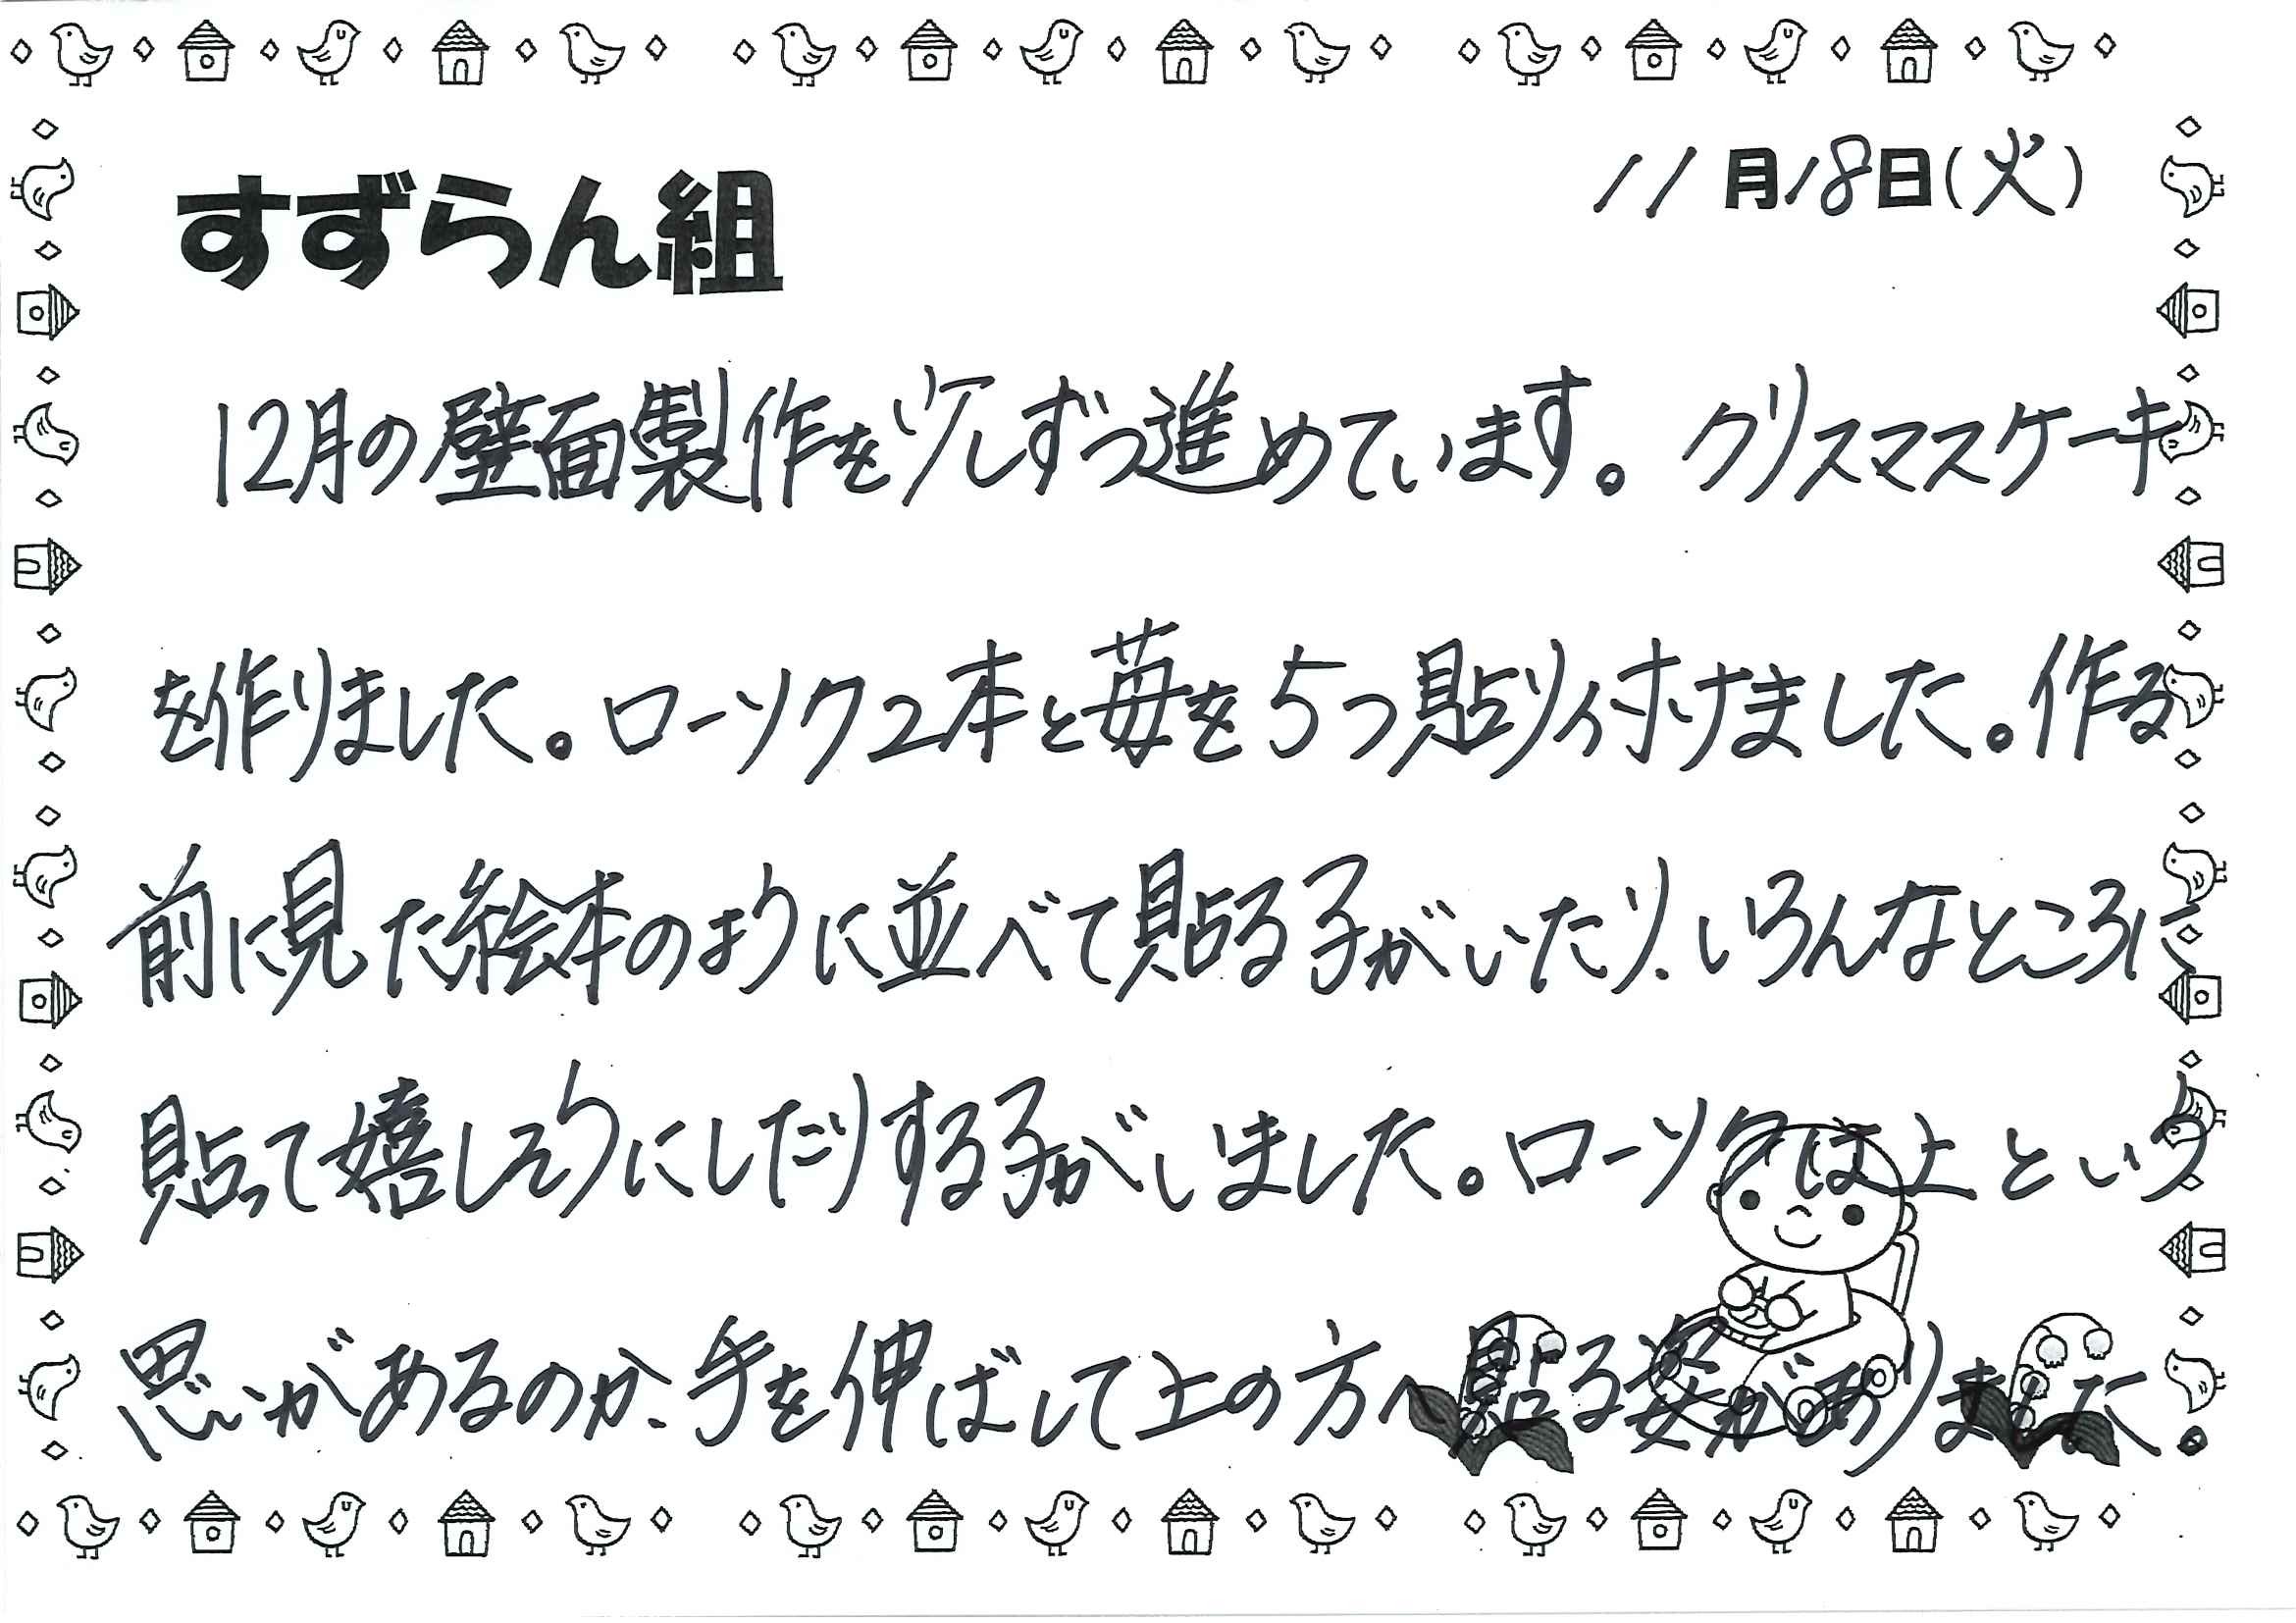 11月18日(火)
すずらん組
12月の壁面製作を少しずつ進めています。クリスマスケーキ
を作りました。ローソク2本と苺を5つ貼り付けました。作る
前に見た絵本のように並べて貼る子がいたり、いろんなところに
貼って嬉しそうにしたりする子がいました。ローソクは上という
思いがあるのか、手を伸ばして上の方へ貼る姿がありました。